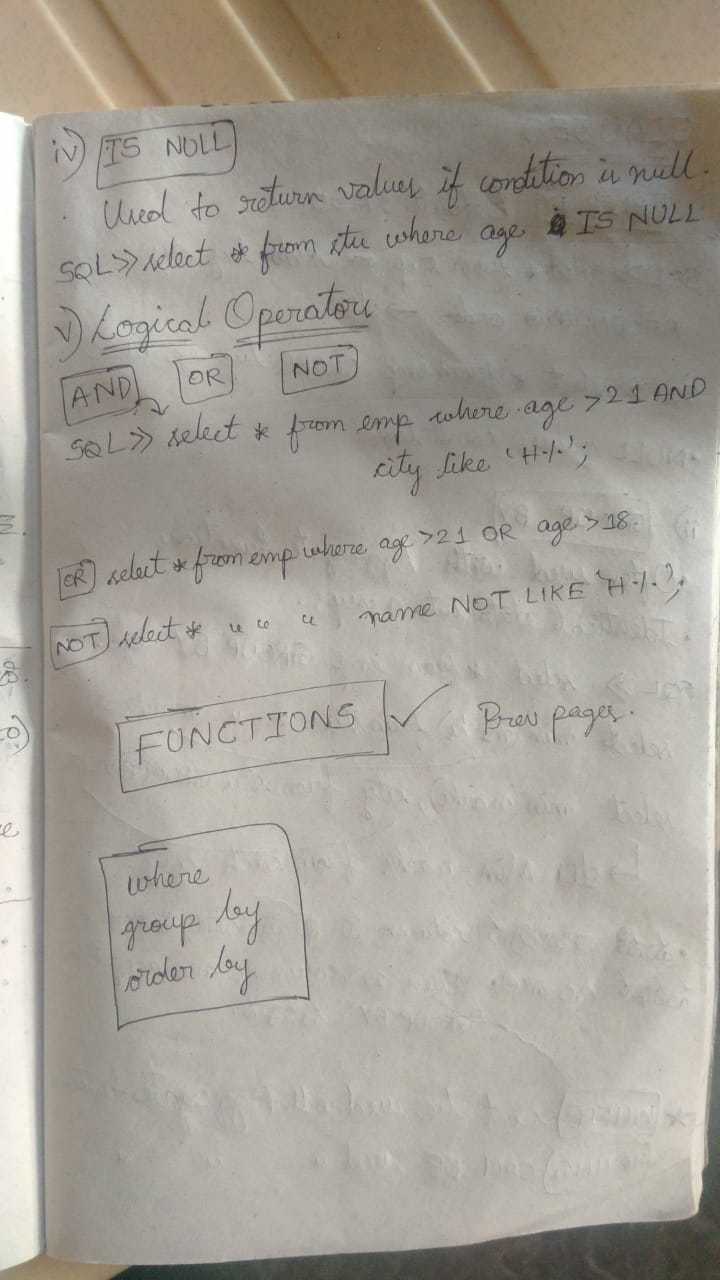 iv) IS NULL
. Used to return values if condition is null.
SQL>> select * from stu where age IS NULL
v) Logical Operators
AND OR NOT
SQL>> select * from emp where age >21 AND
city like 'H%';
OR select * from emp where age >21 OR age >18.
NOT select * " " " name NOT LIKE 'H%';
FUNCTIONS ✓ Prev pages.
where
group by
order by